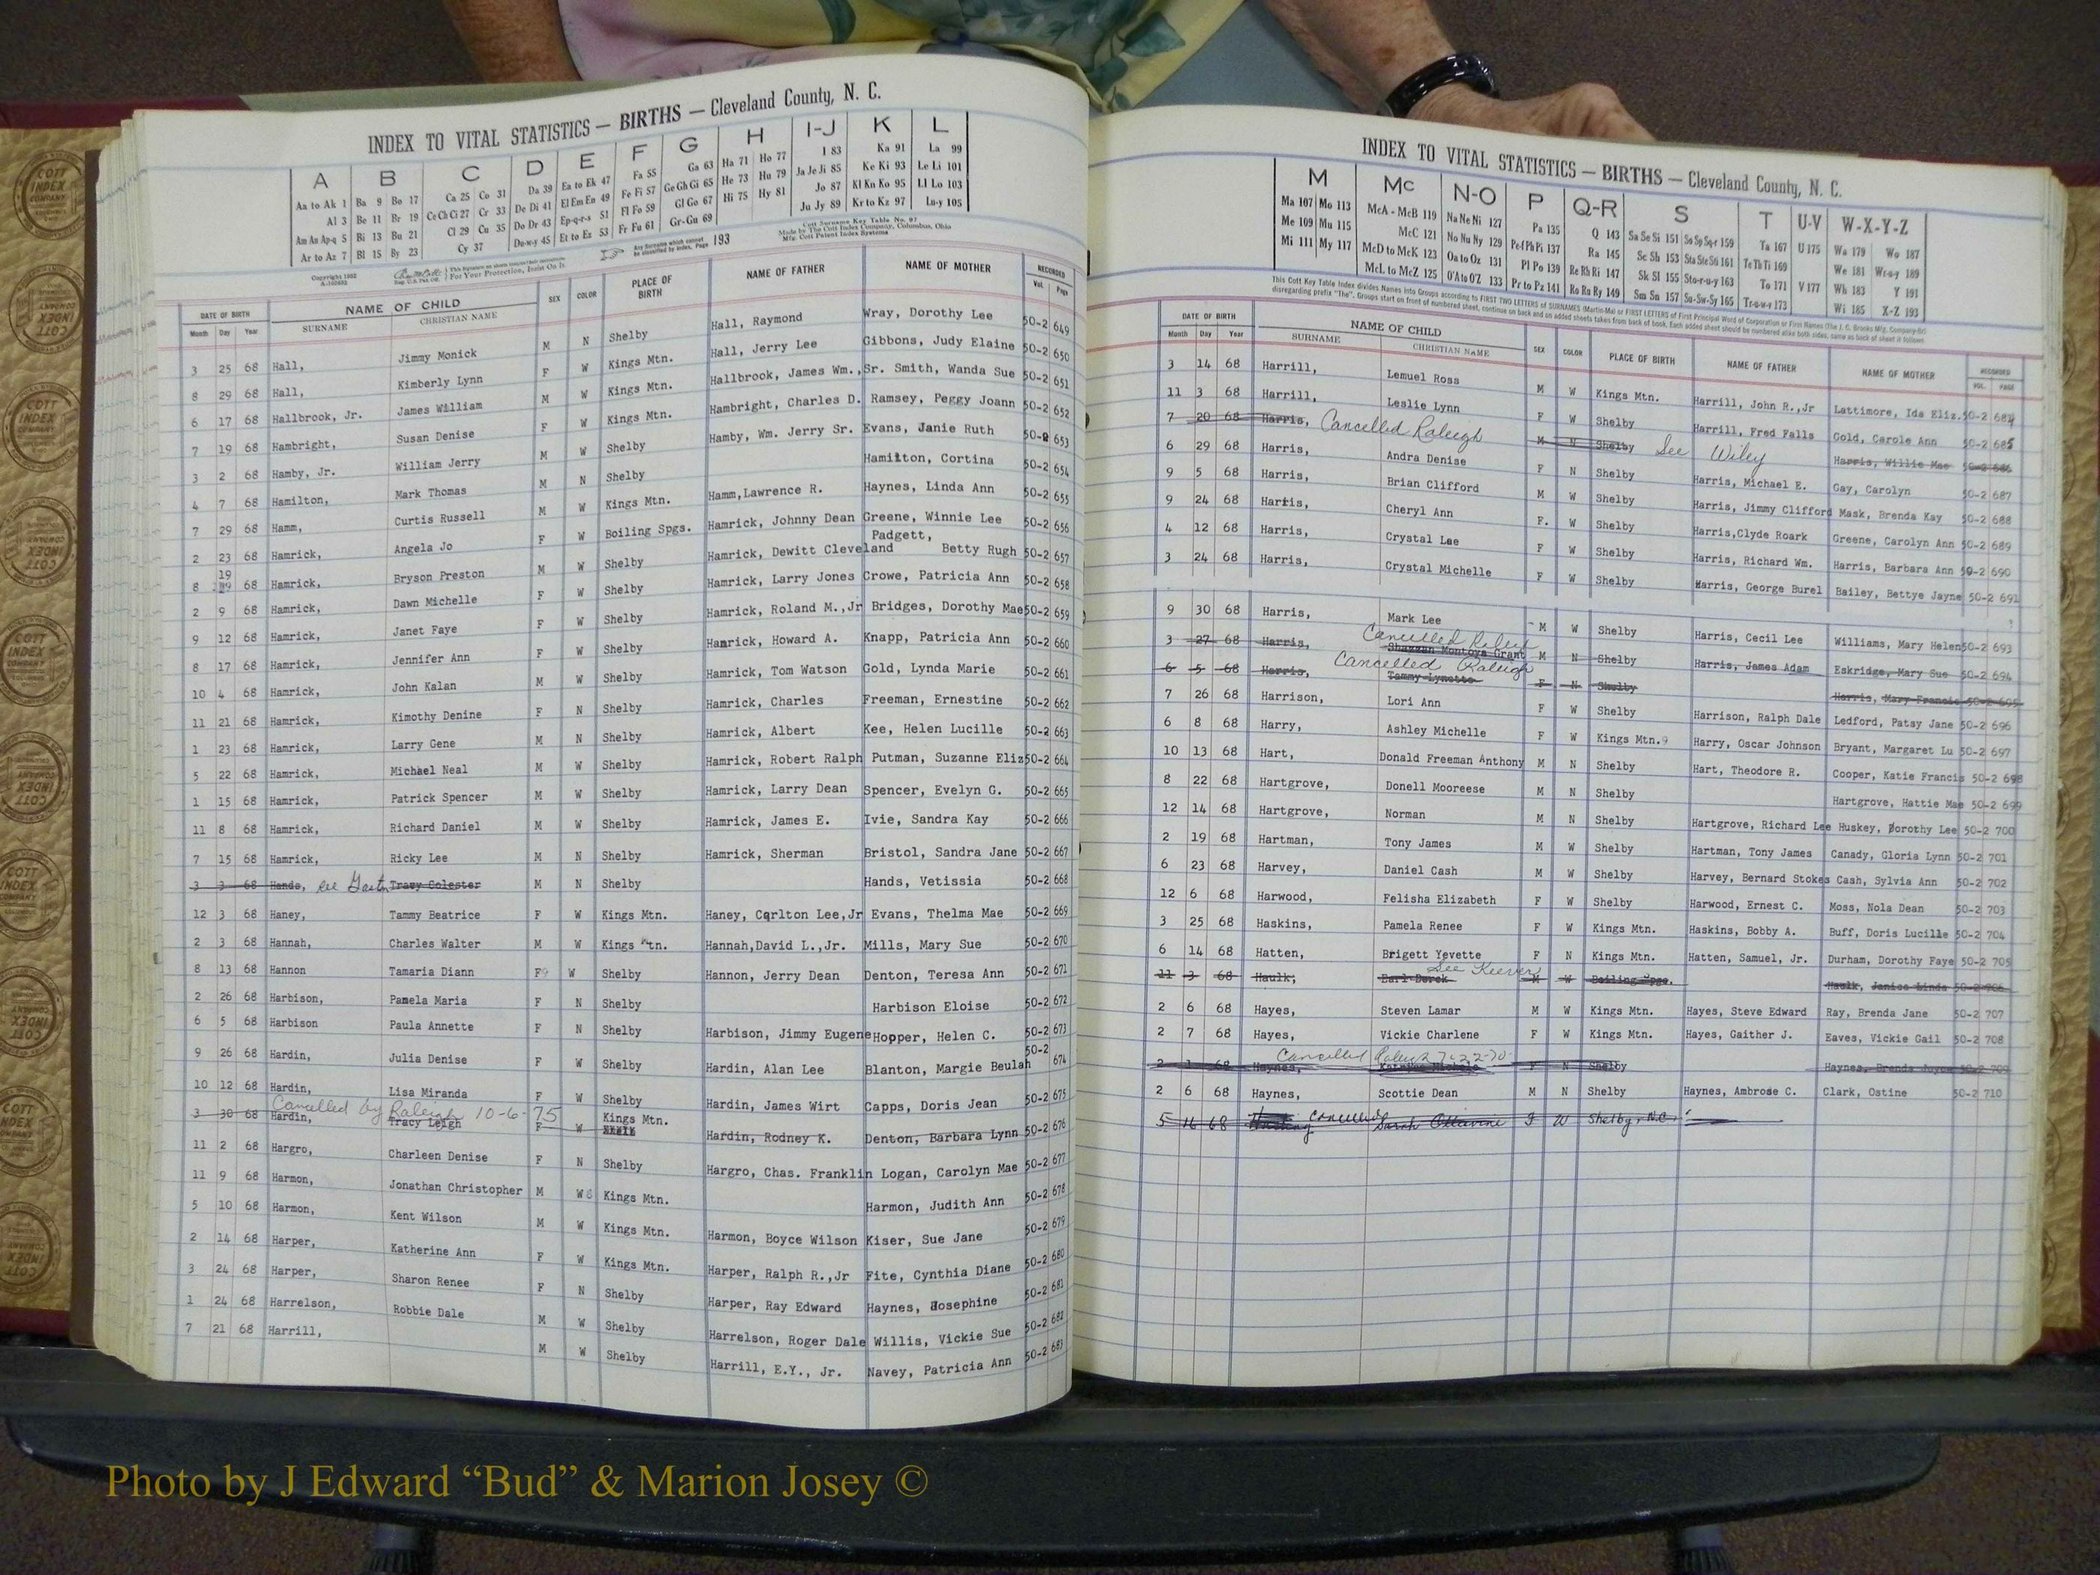 INDEX TO VITAL STATISTICS — BIRTHS — Cleveland County, N. C.
A B C D E F G H I-J K L
Aa to Ak 1 Ba 9 Bo 17 Ca 25 Co 31 Da 39 Ea to Ek 47 Fa 55 Ga 63 Ha 71 Ho 77 I 83 Ka 91 La 99
Al 3 Be 11 Br 19 Ce Ch Ci 27 Cr 33 De Di 41 El Em En 49 Fe Fi 57 Ge Gh Gi 65 He 73 Hu 79 Ja Je Ji 85 Ke Ki 93 Le Li 101
Am An Ap-q 5 Bi 13 Bu 21 Cl 29 Cu 35 Do Dr 43 Ep-q-r-s 51 Fl Fo 59 Gl Go 67 Hi 75 Hy 81 Jo 87 Kl Kn Ko 95 Ll Lo 103
Ar to Az 7 Bl 15 By 23 Cy 37 Du-w-y 45 Et to Ez 53 Fr Fu 61 Gr-Gu 69 Ju Jy 89 Kr to Kz 97 Lu-y 105
Any Surname which cannot be classified by Index, Page 193
Cott Surname Key Table No. 97
Made by The Cott Index Company, Columbus, Ohio
Mfg. Cott Patent Index Systems
Copyright 1952
For Your Protection, Insist On It.
DATE OF BIRTH NAME OF CHILD SEX COLOR PLACE OF BIRTH NAME OF FATHER NAME OF MOTHER RECORDED
Month Day Year SURNAME CHRISTIAN NAME Vol. Page
3 25 68 Hall, Jimmy Monick M N Shelby Hall, Raymond Wray, Dorothy Lee 50-2 649
8 29 68 Hall, Kimberly Lynn F W Kings Mtn. Hall, Jerry Lee Gibbons, Judy Elaine 50-2 650
6 17 68 Hallbrook, Jr. James William M W Kings Mtn. Hallbrook, James Wm., Sr. Smith, Wanda Sue 50-2 651
7 19 68 Hambright, Susan Denise F W Kings Mtn. Hambright, Charles D. Ramsey, Peggy Joann 50-2 652
3 2 68 Hamby, Jr. William Jerry M W Shelby Hamby, Wm. Jerry Sr. Evans, Janie Ruth 50-2 653
4 7 68 Hamilton, Mark Thomas M N Shelby Hamilton, Cortina 50-2 654
7 29 68 Hamm, Curtis Russell M W Kings Mtn. Hamm, Lawrence R. Haynes, Linda Ann 50-2 655
2 23 68 Hamrick, Angela Jo F W Boiling Spgs. Hamrick, Johnny Dean Greene, Winnie Lee 50-2 656
8 19 68 Hamrick, Bryson Preston M W Shelby Hamrick, Dewitt Cleveland Padgett, Betty Rugh 50-2 657
2 9 68 Hamrick, Dawn Michelle F W Shelby Hamrick, Larry Jones Crowe, Patricia Ann 50-2 658
9 12 68 Hamrick, Janet Faye F W Shelby Hamrick, Roland M., Jr Bridges, Dorothy Mae 50-2 659
8 17 68 Hamrick, Jennifer Ann F W Shelby Hamrick, Howard A. Knapp, Patricia Ann 50-2 660
10 4 68 Hamrick, John Kalan M W Shelby Hamrick, Tom Watson Gold, Lynda Marie 50-2 661
11 21 68 Hamrick, Kimothy Denine F N Shelby Hamrick, Charles Freeman, Ernestine 50-2 662
1 23 68 Hamrick, Larry Gene M N Shelby Hamrick, Albert Kee, Helen Lucille 50-2 663
5 22 68 Hamrick, Michael Neal M W Shelby Hamrick, Robert Ralph Putman, Suzanne Eliz 50-2 664
1 15 68 Hamrick, Patrick Spencer M W Shelby Hamrick, Larry Dean Spencer, Evelyn G. 50-2 665
11 8 68 Hamrick, Richard Daniel M W Shelby Hamrick, James E. Ivie, Sandra Kay 50-2 666
7 15 68 Hamrick, Ricky Lee M N Shelby Hamrick, Sherman Bristol, Sandra Jane 50-2 667
3 3 68 Hands, see Tracy Colester M N Shelby Hands, Vetissia 50-2 668
12 3 68 Haney, Tammy Beatrice F W Kings Mtn. Haney, Carlton Lee, Jr Evans, Thelma Mae 50-2 669
2 3 68 Hannah, Charles Walter M W Kings Mtn. Hannah, David L., Jr. Mills, Mary Sue 50-2 670
8 13 68 Hannon Tamaria Diann F W Shelby Hannon, Jerry Dean Denton, Teresa Ann 50-2 671
2 26 68 Harbison, Pamela Maria F N Shelby Harbison Eloise 50-2 672
6 5 68 Harbison Paula Annette F N Shelby Harbison, Jimmy Eugene Hopper, Helen C. 50-2 673
9 26 68 Hardin, Julia Denise F W Shelby Hardin, Alan Lee Blanton, Margie Beulah 50-2 674
10 12 68 Hardin, Lisa Miranda F W Shelby Hardin, James Wirt Capps, Doris Jean 50-2 675
Cancelled by Raleigh 10-6-75
3 30 68 Hardin, Tracy Leigh F W Kings Mtn. Hardin, Rodney K. Denton, Barbara Lynn 50-2 676
11 2 68 Hargro, Charleen Denise F N Shelby Hargro, Chas. Franklin Logan, Carolyn Mae 50-2 677
11 9 68 Harmon, Jonathan Christopher M W Kings Mtn. Harmon, Judith Ann 50-2 678
5 10 68 Harmon, Kent Wilson M W Kings Mtn. Harmon, Boyce Wilson Kiser, Sue Jane 50-2 679
2 14 68 Harper, Katherine Ann F W Kings Mtn. Harper, Ralph R., Jr Fite, Cynthia Diane 50-2 680
3 24 68 Harper, Sharon Renee F N Shelby Harper, Ray Edward Haynes, Josephine 50-2 681
1 24 68 Harrelson, Robbie Dale M W Shelby Harrelson, Roger Dale Willis, Vickie Sue 50-2 682
7 21 68 Harrill, M W Shelby Harrill, E.Y., Jr. Navey, Patricia Ann 50-2 683
INDEX TO VITAL STATISTICS — BIRTHS — Cleveland County, N. C.
M Mc N-O P Q-R S T U-V W-X-Y-Z
Ma 107 Mo 113 McA - McB 119 Na Ne Ni 127 Pa 135 Q 143 Sa Se Si 151 So Sp Sq-r 159 Ta 167 U 175 Wa 179 Wo 187
Me 109 Mu 115 McC 121 No Nu Ny 129 Pe-f Ph Pi 137 Ra 145 Sc Sh 153 Sta Ste Sti 161 Te Th Ti 169 We 181 Wr-u-y 189
Mi 111 My 117 McD to McK 123 Oa to Oz 131 Pl Po 139 Re Rh Ri 147 Sk Sl 155 Sto-r-u-y 163 To 171 V 177 Wh 183 Y 191
McL to McZ 125 O'A to O'Z 133 Pr to Pz 141 Ro Ru Ry 149 Sm Sn 157 Su-Sw-Sy 165 Tr-u-w-y 173 Wi 185 X-Z 193
This Cott Key Table Index divides Names into Groups according to FIRST TWO LETTERS of SURNAMES (Martin-Ma) or FIRST LETTERS of First Principal Word of Corporation or Firm Names (The J. C. Brooks Mfg. Company-Br)
disregarding prefix "The". Groups start on front of numbered sheet, continue on back and on added sheets taken from back of book. Each added sheet should be numbered alike both sides, same as back of sheet it follows
DATE OF BIRTH NAME OF CHILD SEX COLOR PLACE OF BIRTH NAME OF FATHER NAME OF MOTHER RECORDED
Month Day Year SURNAME CHRISTIAN NAME VOL. PAGE
3 14 68 Harrill, Lemuel Ross M W Kings Mtn. Harrill, John R., Jr Lattimore, Ida Eliz. 50-2 684
11 3 68 Harrill, Leslie Lynn F W Shelby Harrill, Fred Falls Gold, Carole Ann 50-2 685
7 20 68 Harris, Cancelled Raleigh M N Shelby See Wiley Harris, Willie Mae 50-2 686
6 29 68 Harris, Andra Denise F N Shelby Harris, Michael E. Gay, Carolyn 50-2 687
9 5 68 Harris, Brian Clifford M W Shelby Harris, Jimmy Clifford Mask, Brenda Kay 50-2 688
9 24 68 Harris, Cheryl Ann F. W Shelby Harris, Clyde Roark Greene, Carolyn Ann 50-2 689
4 12 68 Harris, Crystal Lee F W Shelby Harris, Richard Wm. Harris, Barbara Ann 50-2 690
3 24 68 Harris, Crystal Michelle F W Shelby Harris, George Burel Bailey, Bettye Jayne 50-2 691
9 30 68 Harris, Mark Lee M W Shelby Harris, Cecil Lee Williams, Mary Helen 50-2 693
Cancelled Raleigh
3 27 68 Harris, Shannan Montoya Grant M N Shelby Harris, James Adam Eskridge, Mary Sue 50-2 694
Cancelled Raleigh
6 5 68 Harris, Tammy Lynette F N Shelby Harris, Mary Francis 50-2 695
7 26 68 Harrison, Lori Ann F W Shelby Harrison, Ralph Dale Ledford, Patsy Jane 50-2 696
6 8 68 Harry, Ashley Michelle F W Kings Mtn. Harry, Oscar Johnson Bryant, Margaret Lu 50-2 697
10 13 68 Hart, Donald Freeman Anthony M N Shelby Hart, Theodore R. Cooper, Katie Francis 50-2 698
8 22 68 Hartgrove, Donell Mooreese M N Shelby Hartgrove, Hattie Mae 50-2 699
12 14 68 Hartgrove, Norman M N Shelby Hartgrove, Richard Lee Huskey, Dorothy Lee 50-2 700
2 19 68 Hartman, Tony James M W Shelby Hartman, Tony James Canady, Gloria Lynn 50-2 701
6 23 68 Harvey, Daniel Cash M W Shelby Harvey, Bernard Stokes Cash, Sylvia Ann 50-2 702
12 6 68 Harwood, Felisha Elizabeth F W Shelby Harwood, Ernest C. Moss, Nola Dean 50-2 703
3 25 68 Haskins, Pamela Renee F W Kings Mtn. Haskins, Bobby A. Buff, Doris Lucille 50-2 704
6 14 68 Hatten, Brigett Yevette F N Kings Mtn. Hatten, Samuel, Jr. Durham, Dorothy Faye 50-2 705
See Keever
11 3 68 Haulk, Earl Derek M W Boiling Spgs. Haulk, Janice Linda 50-2 706
2 6 68 Hayes, Steven Lamar M W Kings Mtn. Hayes, Steve Edward Ray, Brenda Jane 50-2 707
2 7 68 Hayes, Vickie Charlene F W Kings Mtn. Hayes, Gaither J. Eaves, Vickie Gail 50-2 708
Cancelled Raleigh 7-22-70
2 1 68 Haynes, Katrina Michele F N Shelby Haynes, Brenda Joyce 50-2 709
2 6 68 Haynes, Scottie Dean M N Shelby Haynes, Ambrose C. Clark, Ostine 50-2 710
5 16 68 cancelled Sarah F W Shelby, N.C.
Photo by J Edward “Bud” & Marion Josey ©